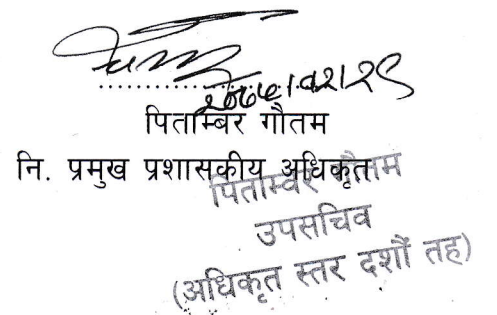 २०७५।०२।२९
पिताम्बर गौतम
नि. प्रमुख प्रशासकीय अधिकृत
पिताम्वर गौतम
उपसचिव
(अधिकृत स्तर दशौं तह)